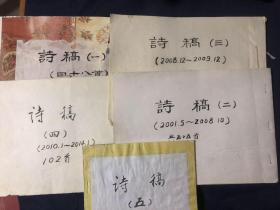 詩稿(一)
詩稿(三)
(2008.12～2009.12)
诗稿
(四)
(2010.1～2014.1)
102首
詩稿(二)
(2001.5～2008.10)
诗稿
(五)